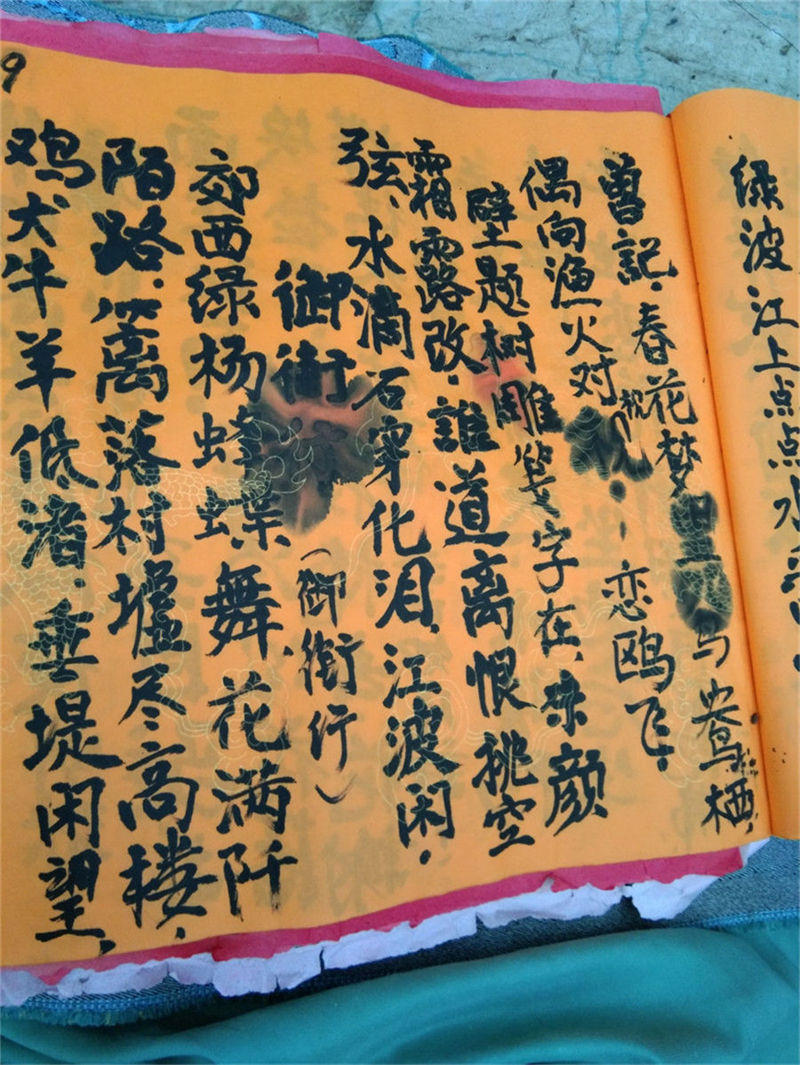 绿波江上点点水
曾記．春花梦
鸳栖，
偶向漁火对枕．恋鸥飞．
壁题树雕笺字在．朱颜
霜露改．誰道离恨挑空
弦．水滴石穿化泪．江波闲．
御街
（御街行）
郊西绿杨蜂蝶舞．花满阡
陌路．篱落村墟尽高楼．
鸡犬牛羊低渚．垂堤闲望．
9